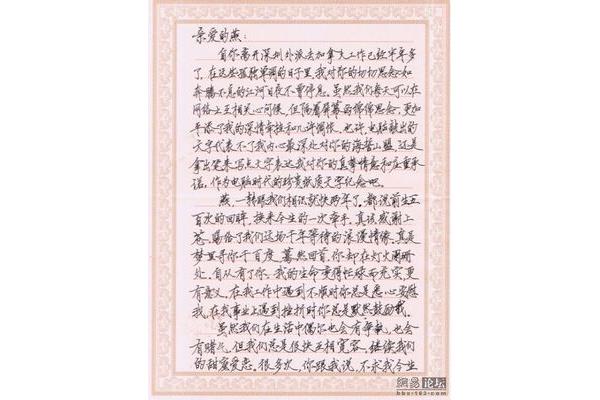 亲爱的燕：
自你离开深圳外派去加拿大工作已经半年多
了，在这些孤独单调的日子里，我对你的切切思念如
奔腾不息的江河日夜不曾停息。虽然我们每天可以在
网络上互相关心问候，但隔着屏幕的绵绵思念，更加
平添了我的深情牵挂和几许惆怅，也许，电脑敲出的
文字代表不了我内心最深处对你的海誓山盟，还是
拿出笔来写点文字表达我对你的真挚情意和庄重承
诺，作为电脑时代的珍贵纸质文字纪念吧。
燕，一转眼我们相识就快两年了。都说前生五
百次的回眸，换来今生的一次牵手，真该感谢上
苍，赐给了我们这场千年等待的浪漫情缘，真是
梦里寻你千百度，蓦然回首，你却在灯火阑珊
处。自从有了你，我的生命变得忙碌而充实，更
有意义，在我工作中遇到不顺时你总是悉心安慰
我，在我事业上遇到挫折时你总是默默鼓励我。
虽然我们在生活中偶尔也会有争执，也会
有赌气，但我们总是很快互相宽容，继续我们
的甜蜜爱恋。很多次，你跟我说，不求我今生
網易论坛
bbs.163.com